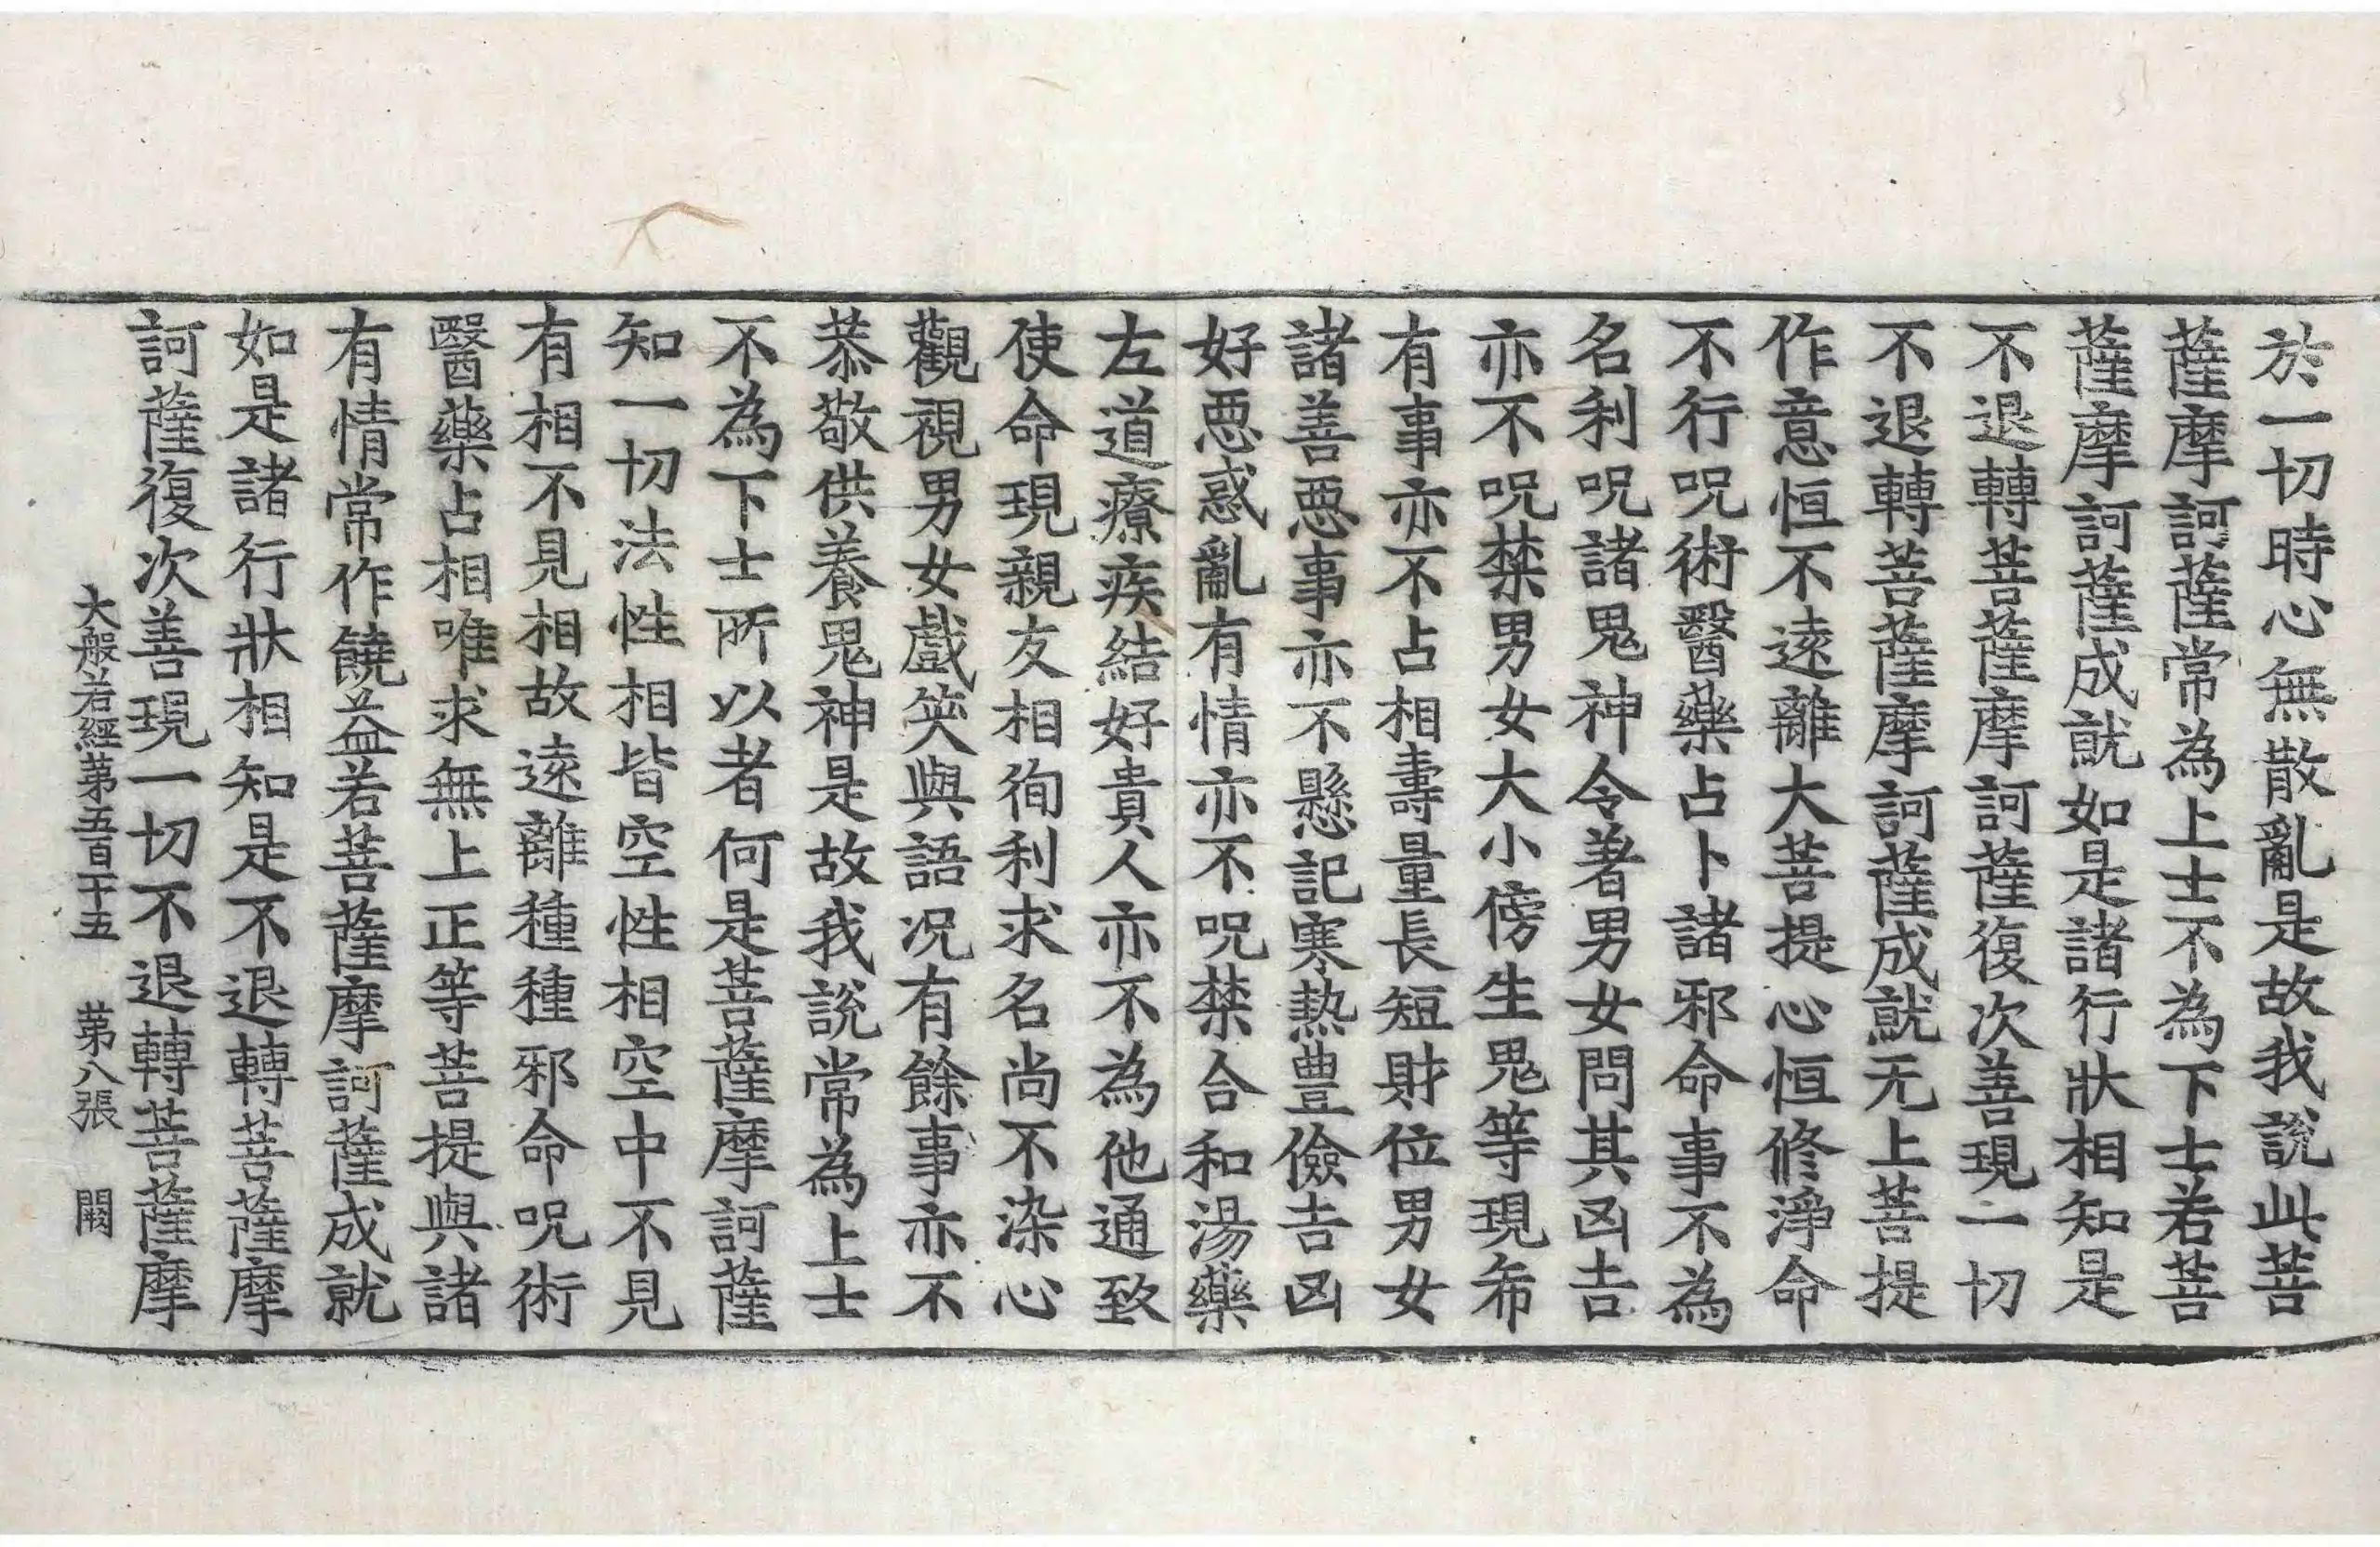 於一切時心無散亂是故我說此菩
薩摩訶薩常為上士不為下士若菩
薩摩訶薩成就如是諸行狀相知是
不退轉菩薩摩訶薩復次善現一切
不退轉菩薩摩訶薩成就无上菩提
作意恒不遠離大菩提心恒修淨命
不行呪術醫藥占卜諸邪命事不為
名利呪諸鬼神令著男女問其凶吉
亦不呪禁男女大小傍生鬼等現希
有事亦不占相壽量長短財位男女
諸善惡事亦不懸記寒熱豐儉吉凶
好惡惑亂有情亦不呪禁合和湯藥
左道療疾結好貴人亦不為他通致
使命現親友相徇利求名尚不染心
觀視男女戲笑與語況有餘事亦不
恭敬供養鬼神是故我說常為上士
不為下士所以者何是菩薩摩訶薩
知一切法性相皆空性相空中不見
有相不見相故遠離種種邪命呪術
醫藥占相唯求無上正等菩提與諸
有情常作饒益若菩薩摩訶薩成就
如是諸行狀相知是不退轉菩薩摩
訶薩復次善現一切不退轉菩薩摩
大般若經第五百一十五 第八張 闕